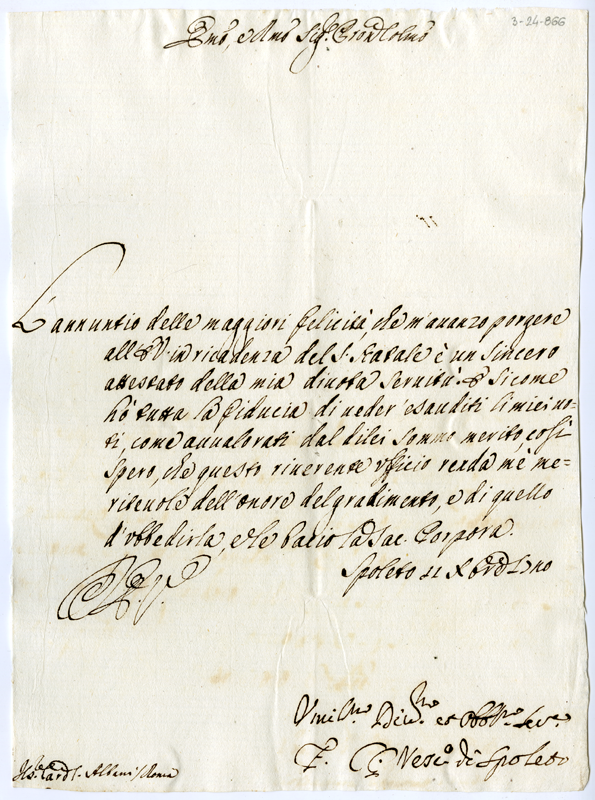 3-24-866
Emõ, e Rmõ Sig.r Pron Colmõ
L'annuntio delle maggiori felicità, che m'auanzo porgere
all'E.V. in ricadenza del S. Natale è un sincero
attestato della mia diuota seruitù. E sicome
hò tutta la fiducia di ueder' esauditi li miei uo-
ti, come auualorati dal di lei sommo merito, così
spero, che questo riuerente ufficio renda mè me=
riteuole dell'onore del gradimento, e di quello
d'ubbedirla, e le bacio la Sac. Porpora.
Spoleto 11 Xbre
Vmil.mo Diu.mo et Obb.mo Ser.e
Vesc.o di Spoleto
Card. Albani / Roma